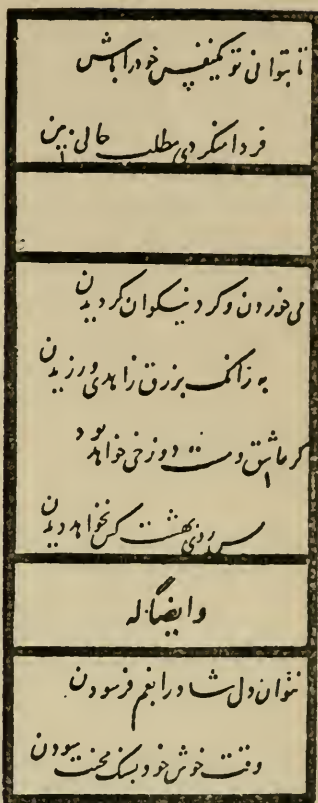 تا بتوانی تو یکنفس خود را باش
فردا منگر دی مطلب حالی بین
می خوردن و گرد نیکوان گردیدن
به زانکه بزرق زاهدی ورزیدن
گر عاشق و مست دوزخی خواهد بود
پس روی بهشت کس نخواهد دیدن
وایضاً له
نتوان دل شاد را بغم فرسودن
وقت خوش خود بسنگ محنت سودن